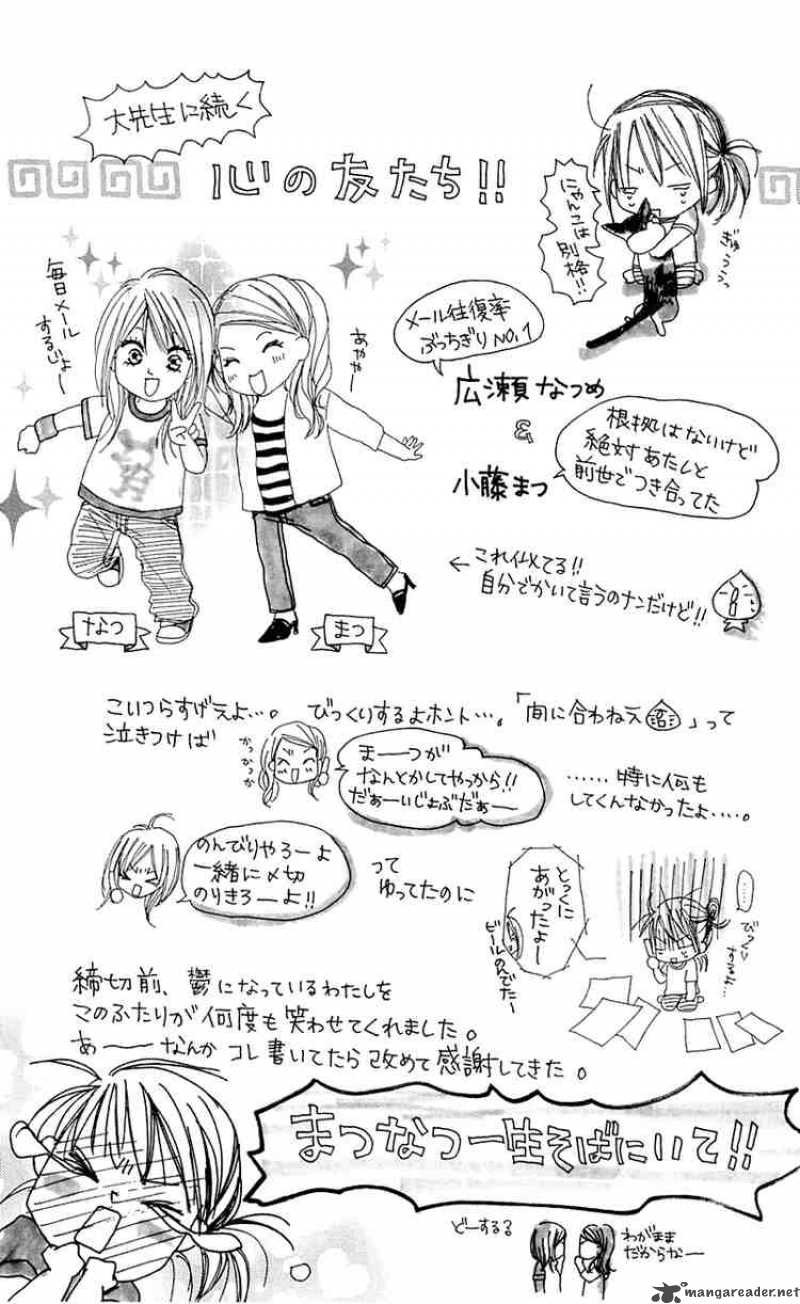 大先生に続く
心の友たち!!
にゃんこは
別格!!
ぎゅううう
毎日メール
するじょー
あややー
メール往復率
ぶっちぎりNO.1
広瀬なつめ
&
小藤まつ
根拠はないけど
絶対あたしと
前世でつき合ってた
← これ似てる!!
自分でかいて言うのナンだけど!!
なつ
まつ
こいつらすげえよ…。びっくりするよホント…。「間に合わねえ沼」って
泣きつけば
かっかっか
まーーつが
なんとかしてやっから!!
だぁーいじょぶだぁー
……時に何も
してくんなかったよ…。
のんびりやろーよ
一緒に〆切
のりきろーよ!!
って
ゆってたのに
とっくに
あがったよー
ビールのんでたー
……
びっくり
するよ…
締切前、鬱になっているわたしを
このふたりが何度も笑わせてくれました。
あ――なんかコレ書いてたら改めて感謝してきた。
まつなつ一生そばにいて!!
どーするる
わがまま
だからなー
mangareader.net